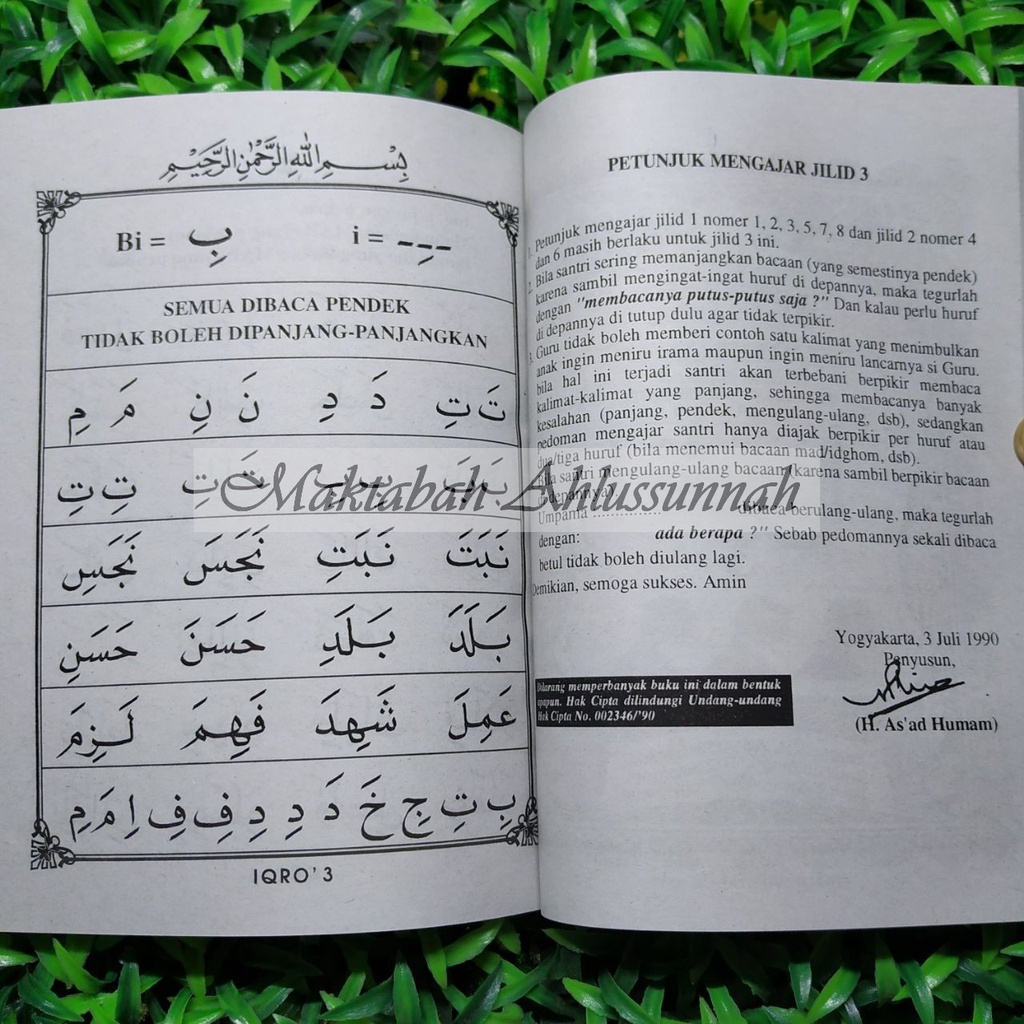 بِسْمِ اللهِ الرَّحْمٰنِ الرَّحِيْمِ
Bi = بِ i = ـِـ
SEMUA DIBACA PENDEK
TIDAK BOLEH DIPANJANG-PANJANGKAN
تَ تِ دَ دِ نَ نِ مَ مِ
تِ تِ
نَبَتَ نَبَتِ نَجَسَ نَجَسِ
بَلَدَ بَلَدِ حَسَنَ حَسَنِ
عَمِلَ شَهِدَ فَهِمَ لَزِمَ
بِ تِ جِ خَ دَ دِ دِ فِ فِ اِ مَ مِ
IQRO' 3
PETUNJUK MENGAJAR JILID 3
Petunjuk mengajar jilid 1 nomer 1, 2, 3, 5, 7, 8 dan jilid 2 nomer 4
dan 6 masih berlaku untuk jilid 3 ini.
Bila santri sering memanjangkan bacaan (yang semestinya pendek)
karena sambil mengingat-ingat huruf di depannya, maka tegurlah
dengan "membacanya putus-putus saja ?" Dan kalau perlu huruf
di depannya di tutup dulu agar tidak terpikir.
Guru tidak boleh memberi contoh satu kalimat yang menimbulkan
anak ingin meniru irama maupun ingin meniru lancarnya si Guru.
bila hal ini terjadi santri akan terbebani berpikir membaca
kalimat-kalimat yang panjang, sehingga membacanya banyak
kesalahan (panjang, pendek, mengulang-ulang, dsb), sedangkan
pedoman mengajar santri hanya diajak berpikir per huruf atau
dua/tiga huruf (bila menemui bacaan mad/idghom, dsb).
Bila santri mengulang-ulang bacaan (karena sambil berpikir bacaan
depannya).
Umpama .............. dibaca berulang-ulang, maka tegurlah
dengan: ada berapa ?" Sebab pedomannya sekali dibaca
betul tidak boleh diulang lagi.
Demikian, semoga sukses. Amin
Yogyakarta, 3 Juli 1990
Penyusun,
(H. As'ad Humam)
Dilarang memperbanyak buku ini dalam bentuk
apapun. Hak Cipta dilindungi Undang-undang
Hak Cipta No. 002346/'90
Maktabah Ahlussunnah